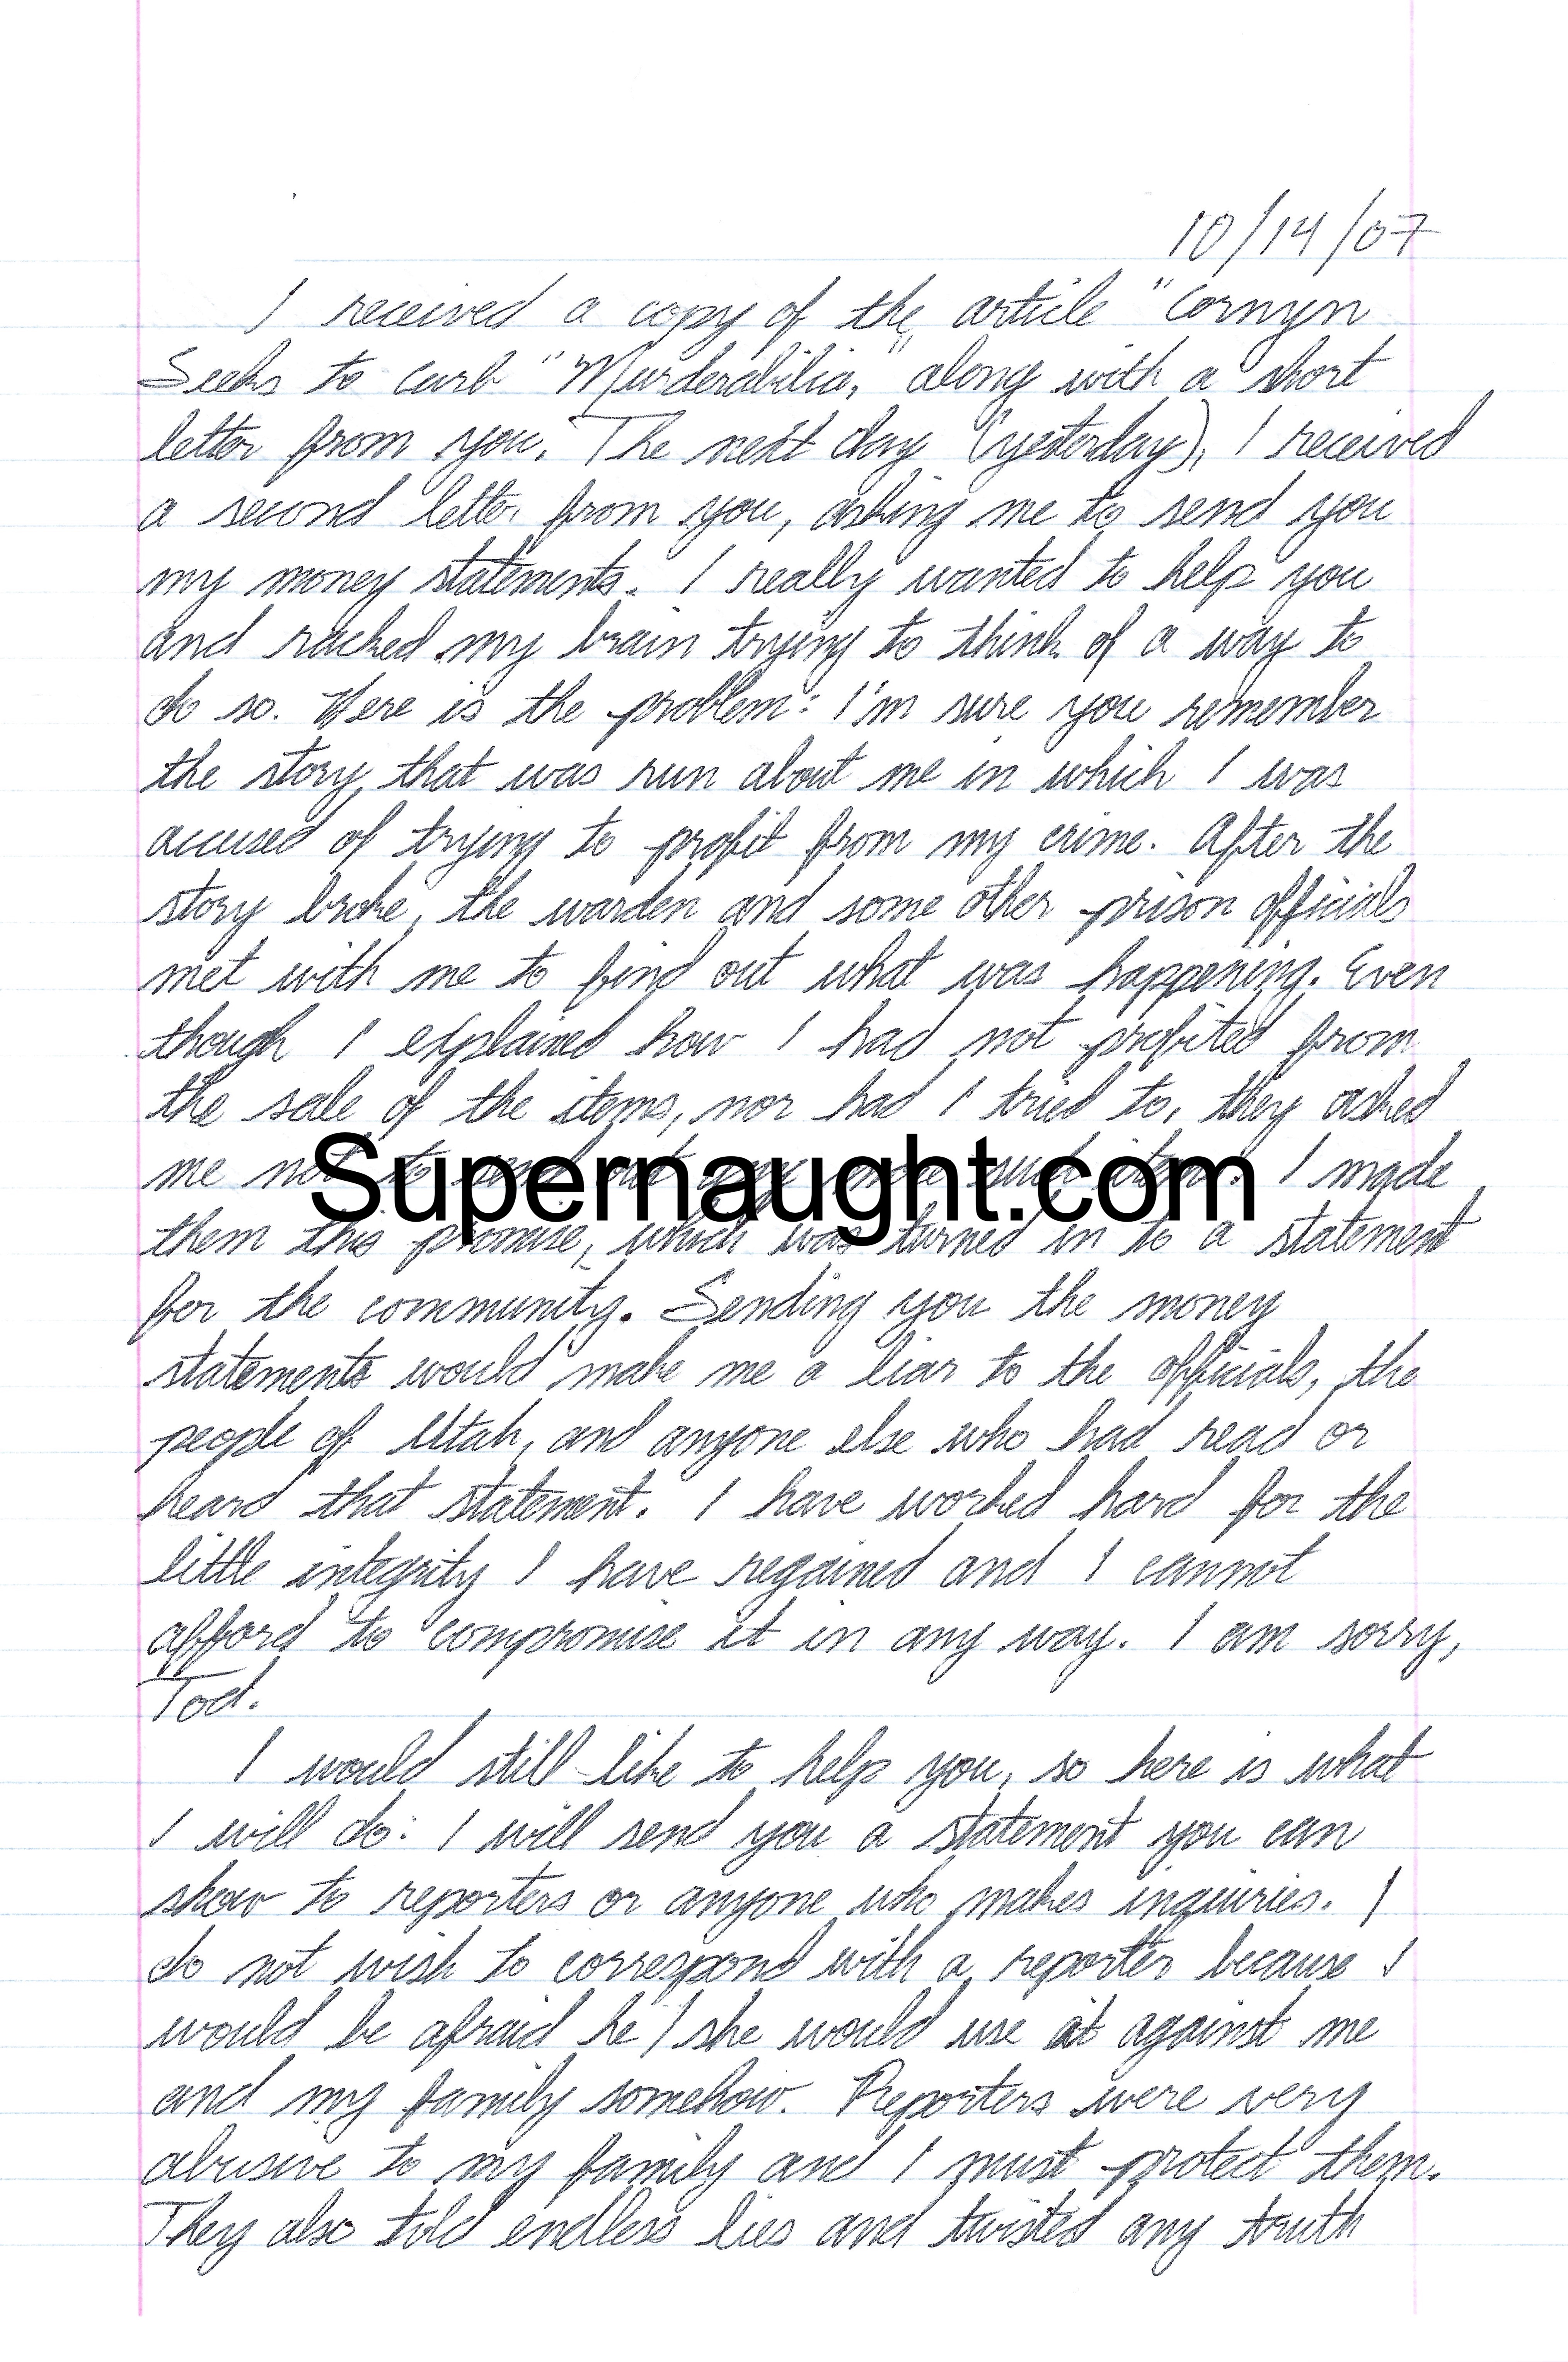 10/14/07
I received a copy of the article "Cornyn
Seeks to Curb "Murderabilia," along with a short
letter from you. The next day (yesterday), I received
a second letter from you, asking me to send you
my money statements. I really wanted to help you
and racked my brain trying to think of a way to
do so. Here is the problem: I'm sure you remember
the story that was run about me in which I was
accused of trying to profit from my crime. After the
story broke, the warden and some other prison officials
met with me to find out what was happening. Even
though I explained how I had not profited from
the sale of the items, nor had I tried to, they asked
me not to I made
Supernaught.com
them this promise, which was turned in to a statement
for the community. Sending you the money
statements would make me a liar to the officials, the
people of Utah, and anyone else who had read or
heard that statement. I have worked hard for the
little integrity I have regained and I cannot
afford to compromise it in any way. I am sorry,
Tod.
I would still like to help you, so here is what
I will do: I will send you a statement you can
show to reporters or anyone who makes inquiries. I
do not wish to correspond with a reporter because I
would be afraid he/she would use it against me
and my family somehow. Reporters were very
abusive to my family and I must protect them.
They also told endless lies and twisted any truth